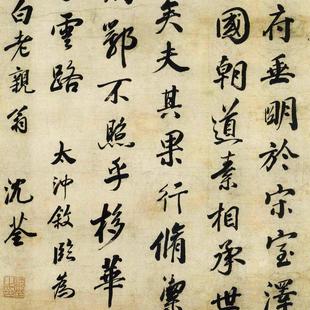 府垂明於宋室澤
國朝道素相承世
矣夫其果行脩潔
鄂不照乎栘華
雲路
太沖敘臨為
白老親翁
沈荃